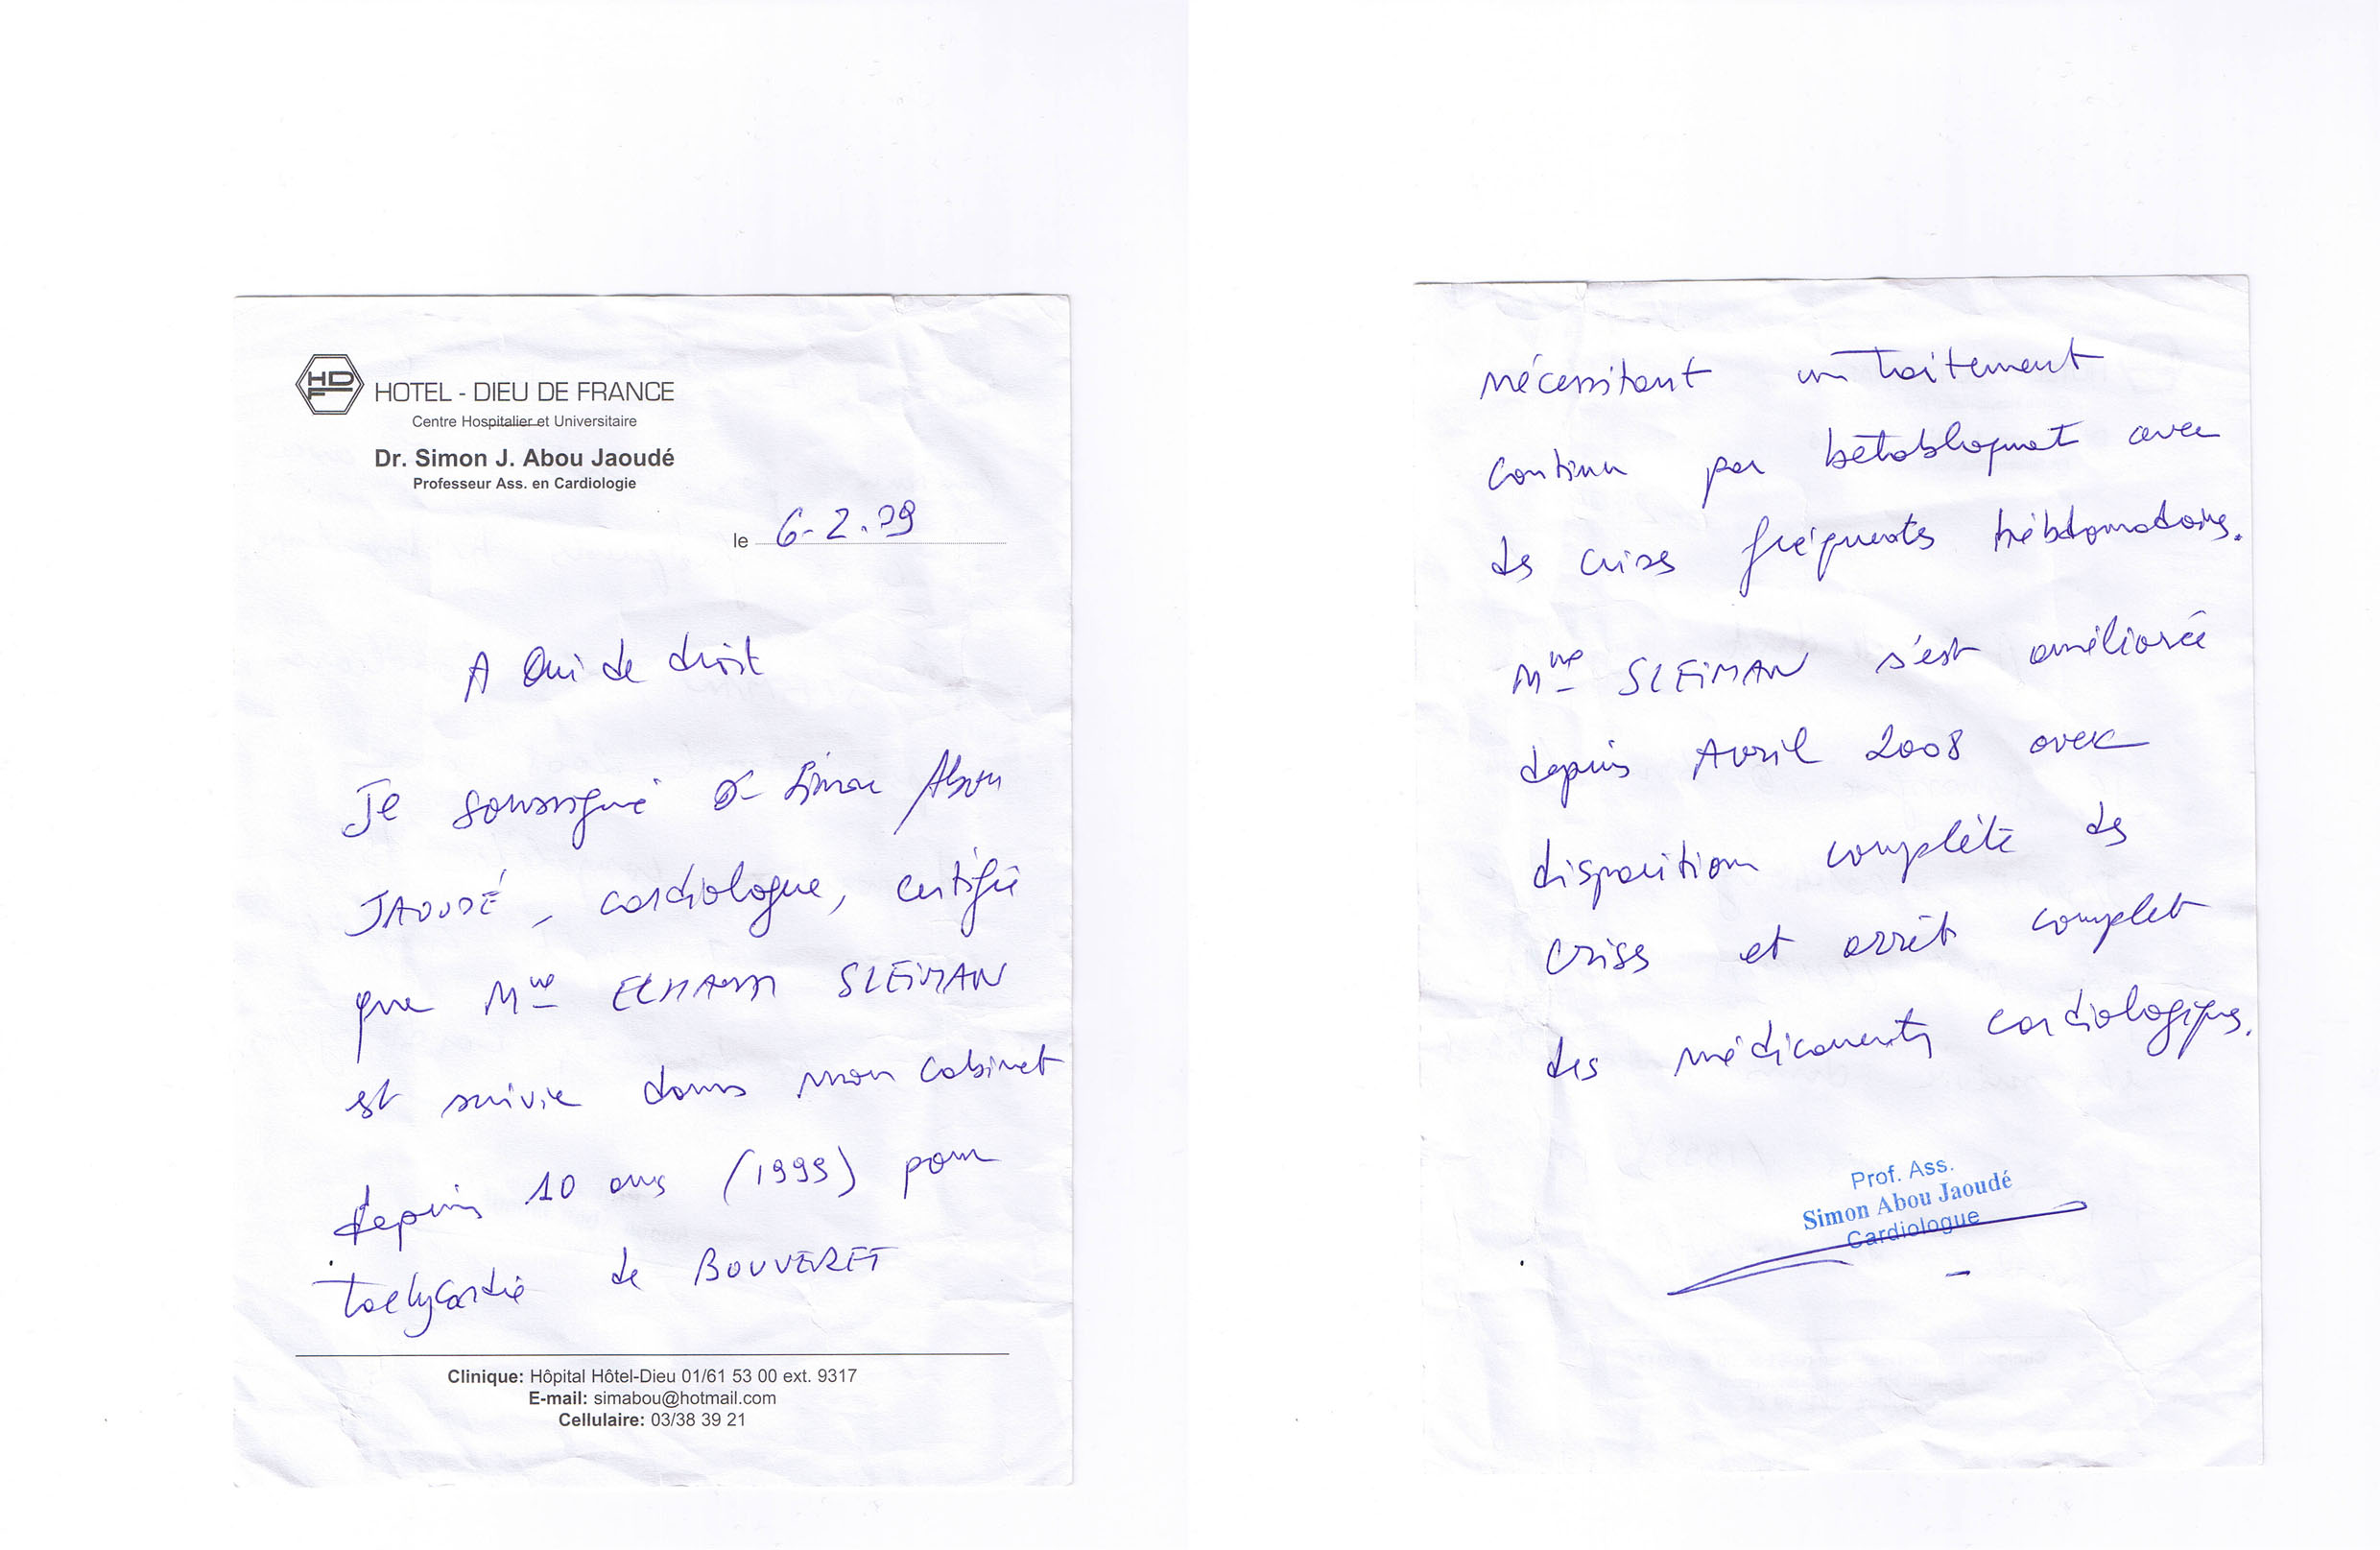 HDF
HOTEL - DIEU DE FRANCE
Centre Hospitalier et Universitaire
Dr. Simon J. Abou Jaoudé
Professeur Ass. en Cardiologie
le 6-2.09
A Qui de droit
Je soussigné Dr Simon Abou
JAOUDÉ, cardiologue, certifie
que Mme SLEIMAN
est suivie dans mon cabinet
depuis 10 ans (1999) pour
tachycardie de BOUVERET
Clinique: Hôpital Hôtel-Dieu 01/61 53 00 ext. 9317
E-mail: simabou@hotmail.com
Cellulaire: 03/38 39 21
nécessitant un traitement
continu par bétabloquant avec
des crises fréquentes hébdomadaires.
Mme SLEIMAN s'est améliorée
depuis Avril 2008 avec
disparition complète des
crises et arrêt complet
des médicaments cardiologiques.
Prof. Ass.
Simon Abou Jaoudé
Cardiologue